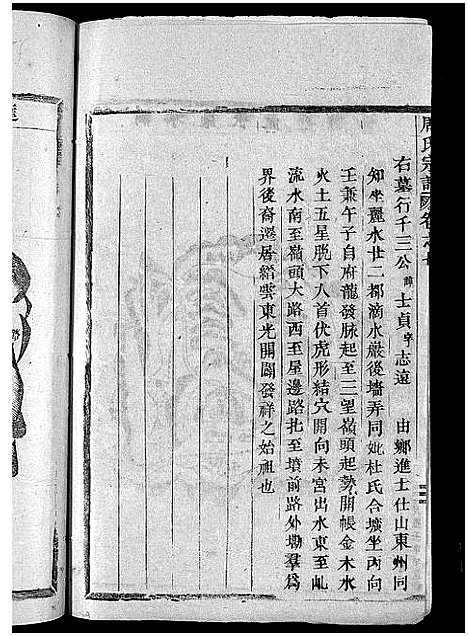 周氏宗譜
右墓行千三公諱士貞字志遠 由鄉進士仕山東州同
知坐麗水廿二都滴水巖後墻弄同妣杜氏合墳坐丙向
壬兼午子自府龍發脉起至三望嶺頭起勢開帳金木水
火土五星脱下八首伏虎形結穴開向未宮出水東至乢
流水南至嶺頭大路西至屋邊路北至墳前路外塝羣為
界後裔遷居縉雲東光開闢發祥之始祖也